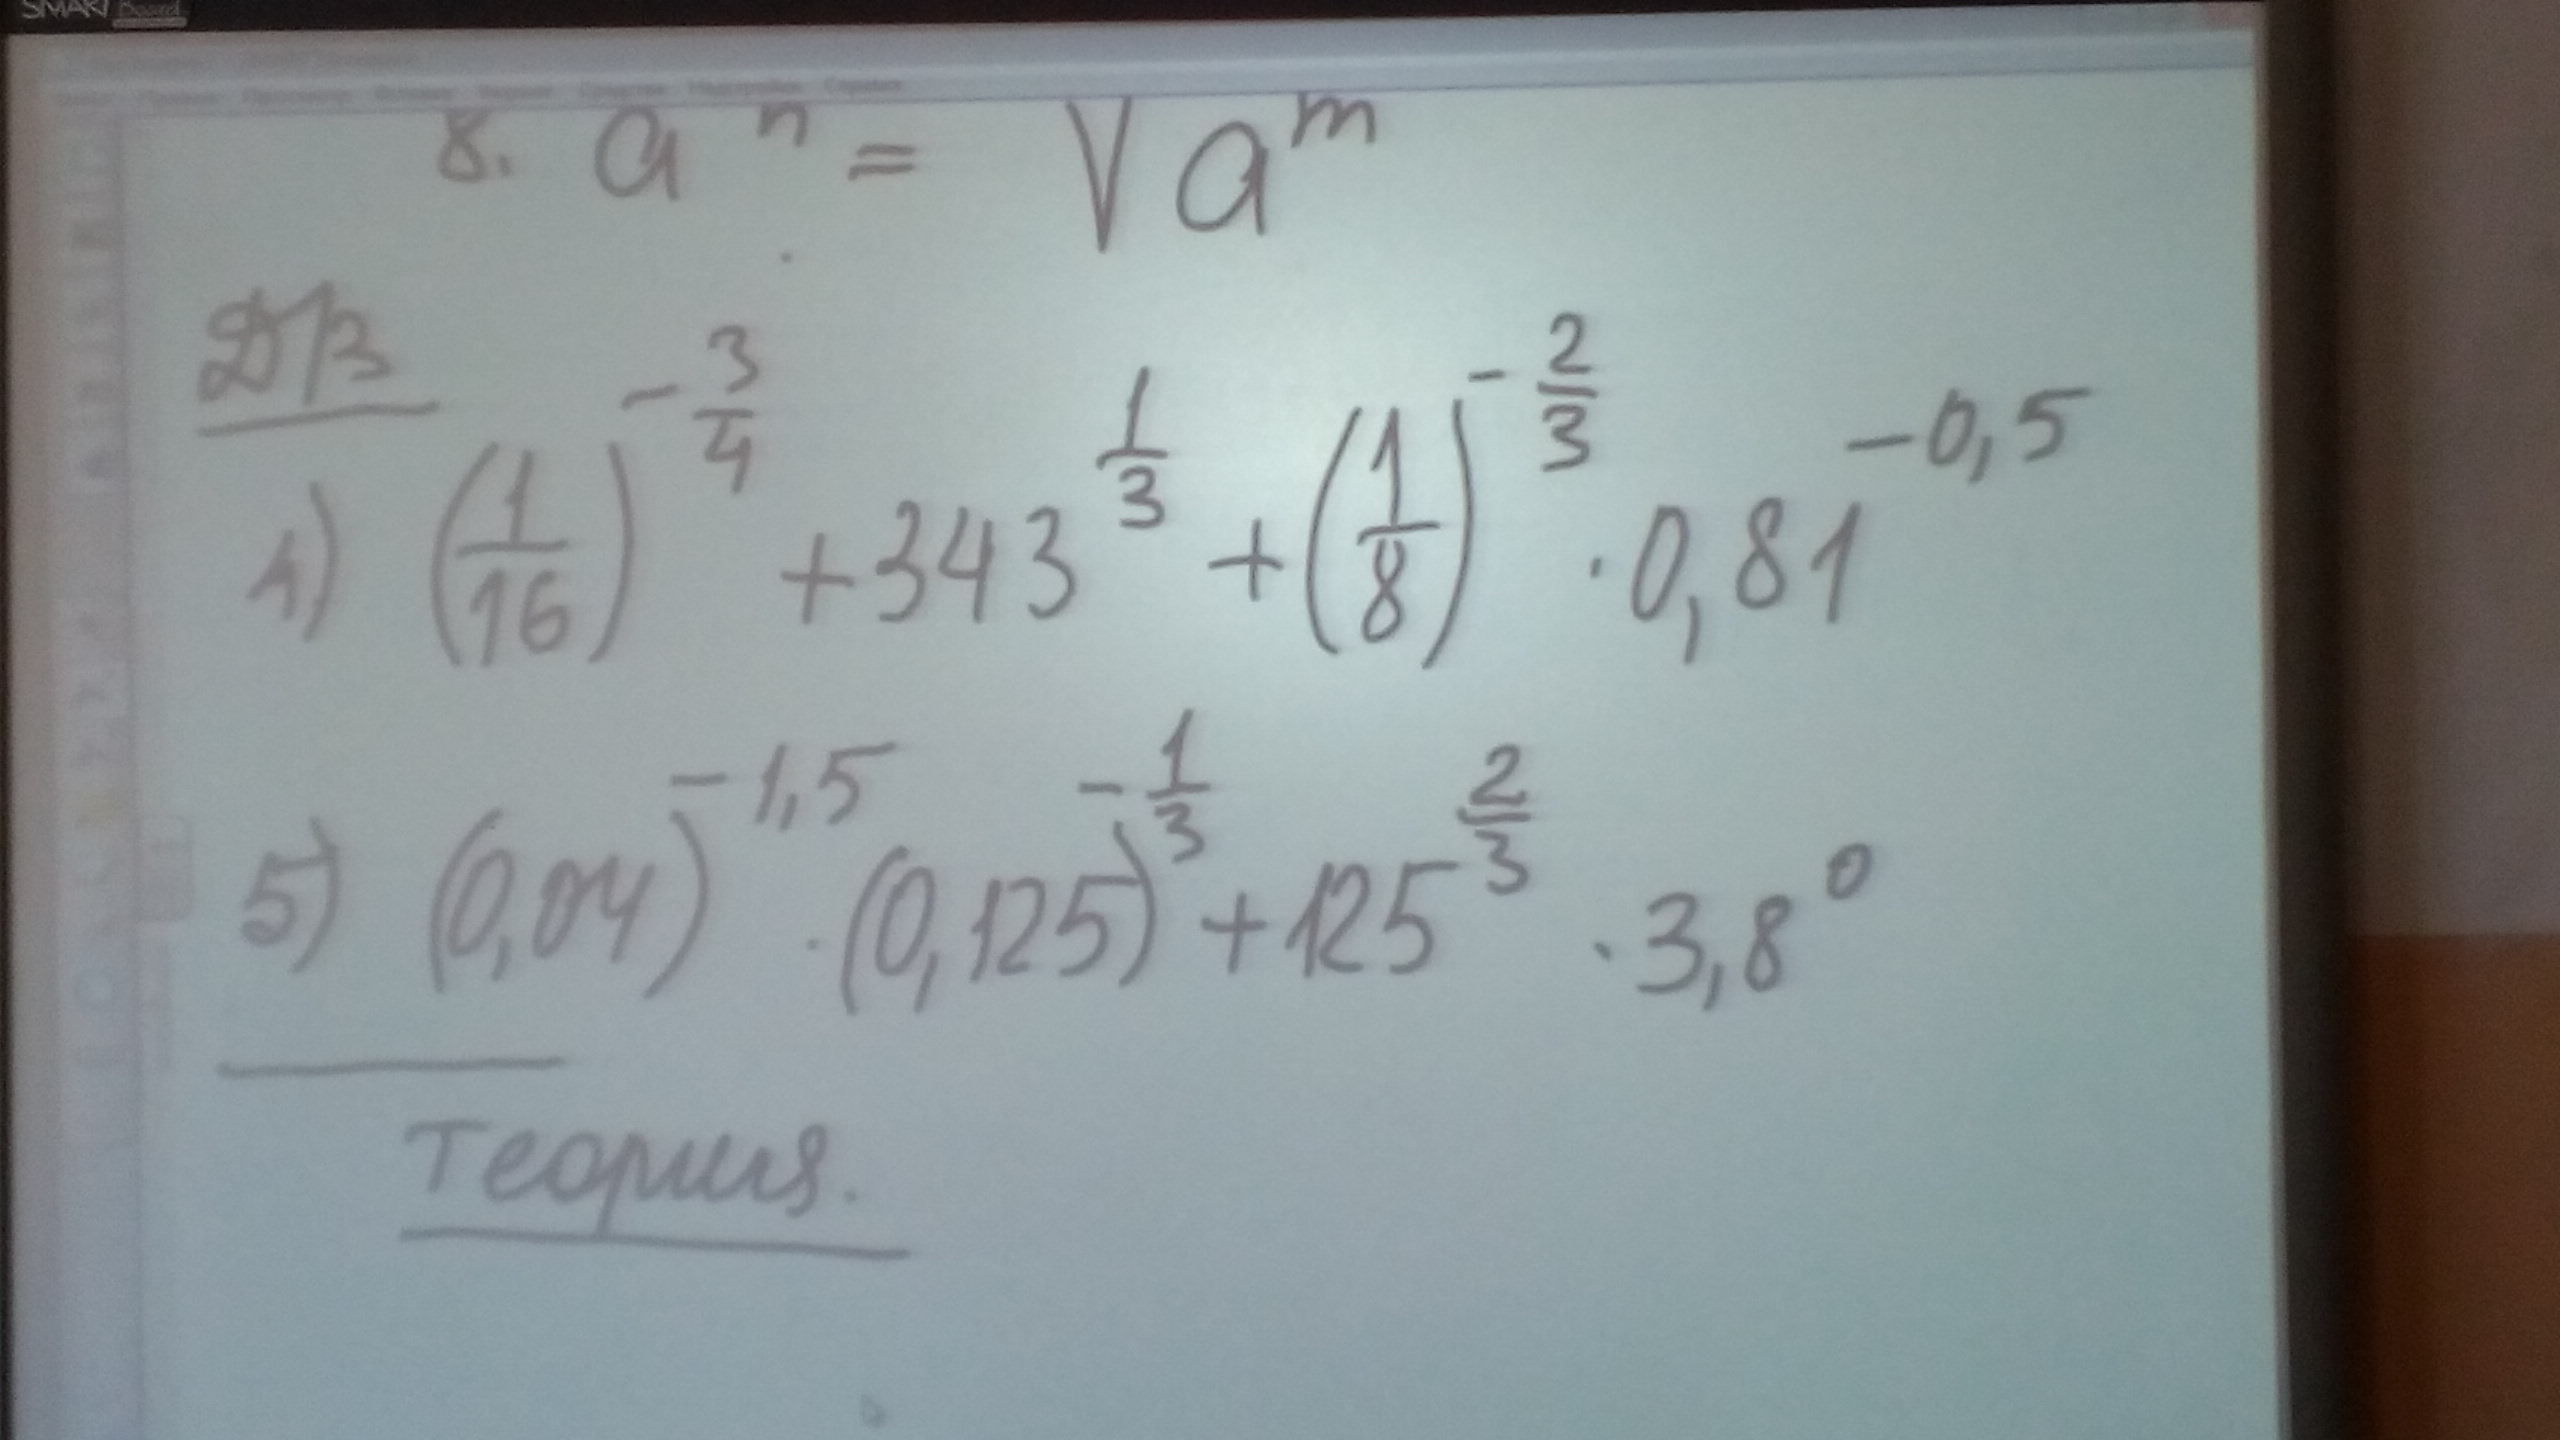 SMART Board
8. a^n = √a^m
Д/з
4) (1/16)^(-3/4) + 343^(1/3) + (1/8)^(-2/3) · 0,81^(-0,5)
5) (0,04)^(-1,5) · (0,125)^(-1/3) + 125^(2/3) · 3,8^0
Теория.